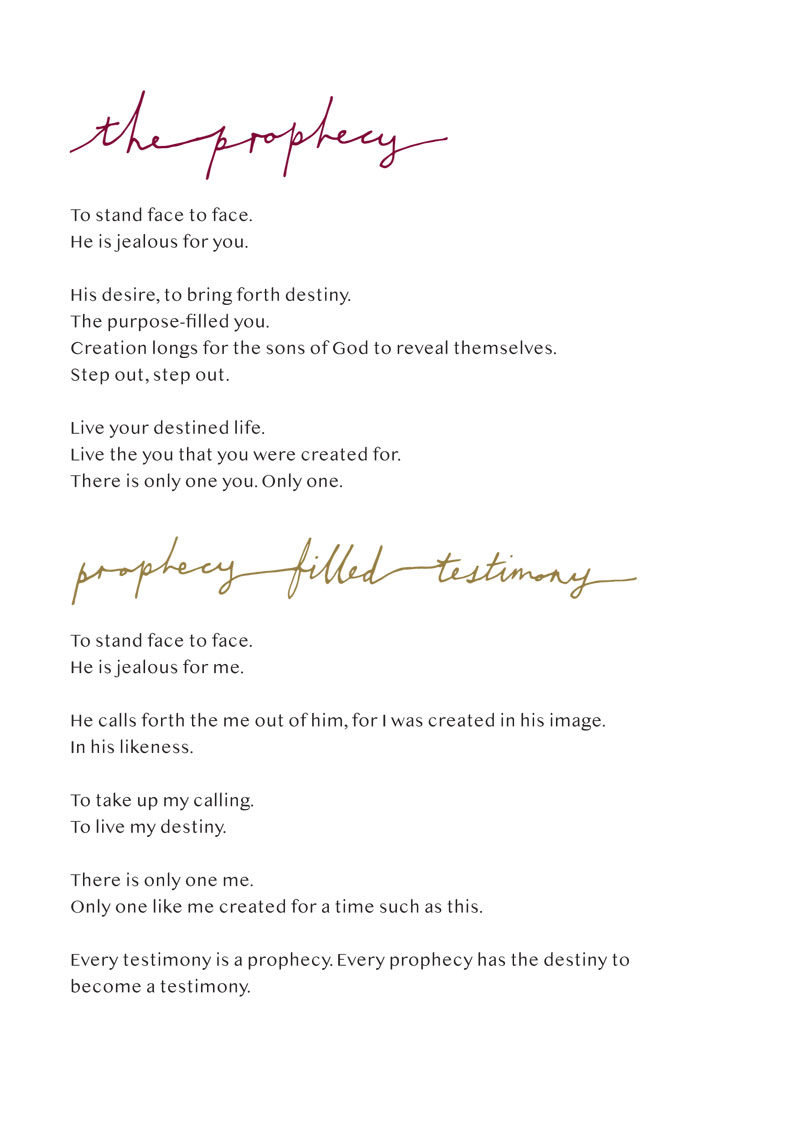 the prophecy
To stand face to face.
He is jealous for you.
His desire, to bring forth destiny.
The purpose-filled you.
Creation longs for the sons of God to reveal themselves.
Step out, step out.
Live your destined life.
Live the you that you were created for.
There is only one you. Only one.
prophecy filled testimony
To stand face to face.
He is jealous for me.
He calls forth the me out of him, for I was created in his image.
In his likeness.
To take up my calling.
To live my destiny.
There is only one me.
Only one like me created for a time such as this.
Every testimony is a prophecy. Every prophecy has the destiny to
become a testimony.